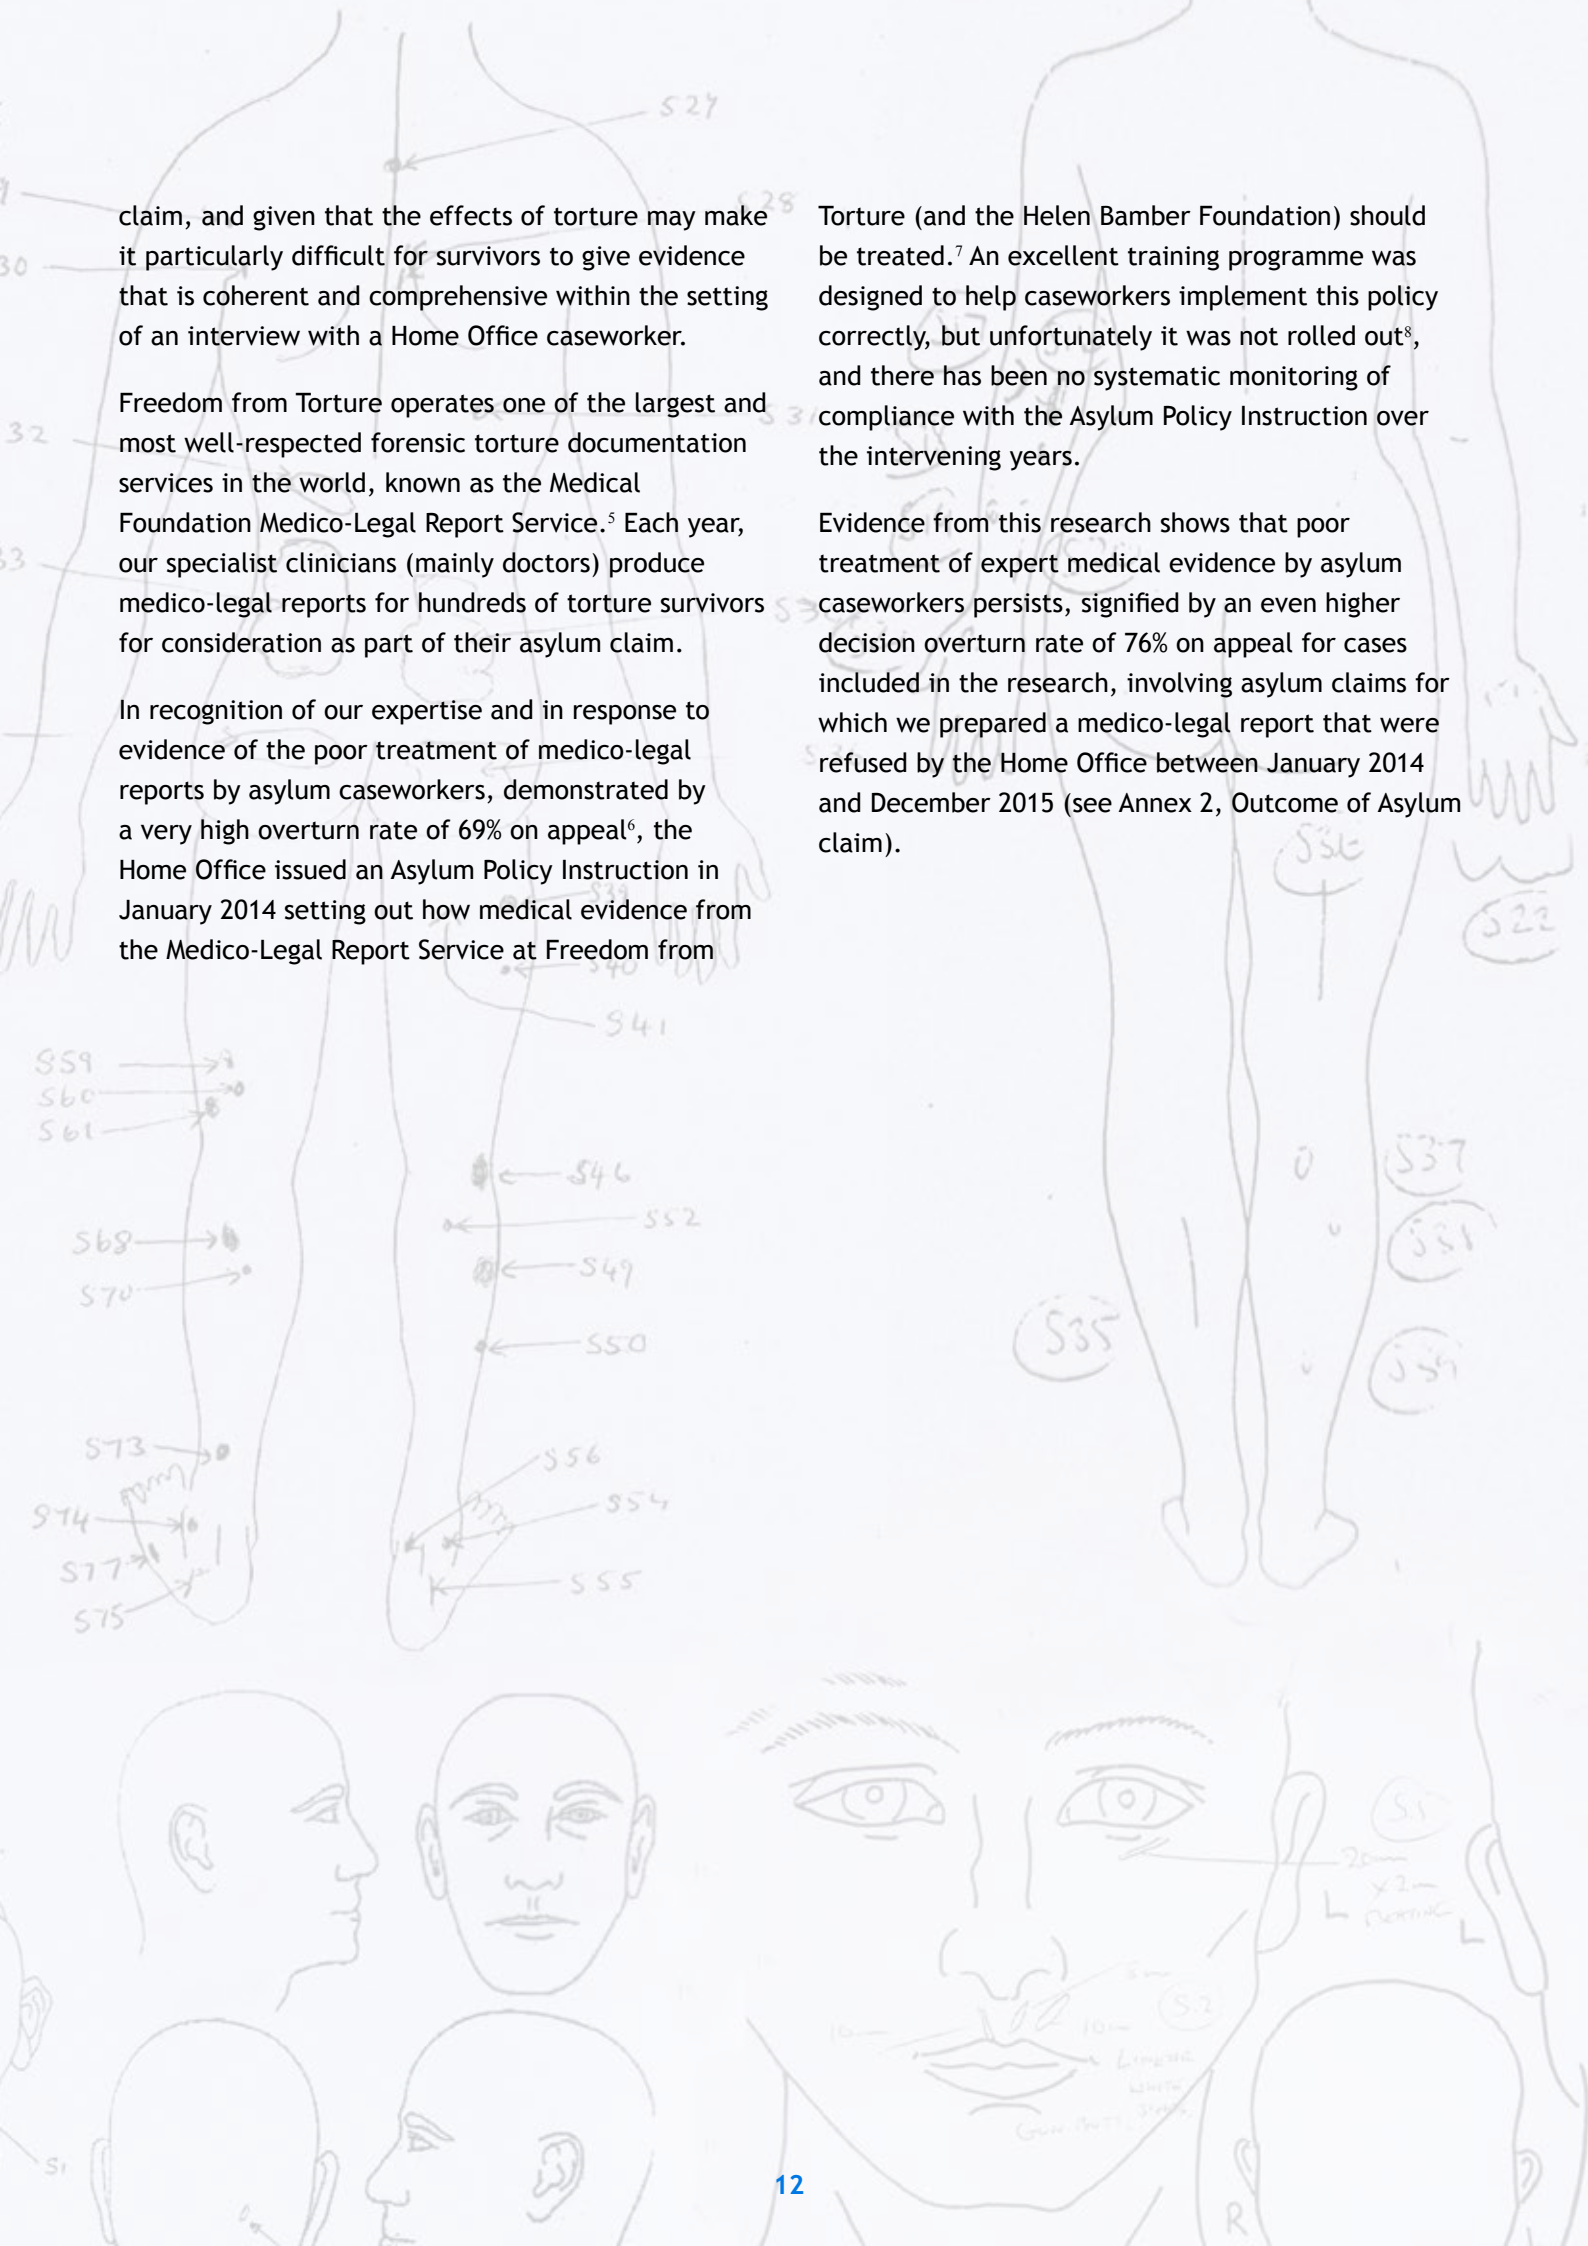 claim, and given that the effects of torture may make
it particularly difficult for survivors to give evidence
that is coherent and comprehensive within the setting
of an interview with a Home Office caseworker.
Freedom from Torture operates one of the largest and
most well-respected forensic torture documentation
services in the world, known as the Medical
Foundation Medico-Legal Report Service.⁵ Each year,
our specialist clinicians (mainly doctors) produce
medico-legal reports for hundreds of torture survivors
for consideration as part of their asylum claim.
In recognition of our expertise and in response to
evidence of the poor treatment of medico-legal
reports by asylum caseworkers, demonstrated by
a very high overturn rate of 69% on appeal⁶, the
Home Office issued an Asylum Policy Instruction in
January 2014 setting out how medical evidence from
the Medico-Legal Report Service at Freedom from
Torture (and the Helen Bamber Foundation) should
be treated.⁷ An excellent training programme was
designed to help caseworkers implement this policy
correctly, but unfortunately it was not rolled out⁸,
and there has been no systematic monitoring of
compliance with the Asylum Policy Instruction over
the intervening years.
Evidence from this research shows that poor
treatment of expert medical evidence by asylum
caseworkers persists, signified by an even higher
decision overturn rate of 76% on appeal for cases
included in the research, involving asylum claims for
which we prepared a medico-legal report that were
refused by the Home Office between January 2014
and December 2015 (see Annex 2, Outcome of Asylum
claim).
S27
S28
30
S31
32
33
S39
S40
S41
S22
S59
S60
S61
S46
S52
S68
S49
S70
S50
S37
S35
S73
S56
S74
S54
S77
S55
S75
S1
L
L
S.2
R
12